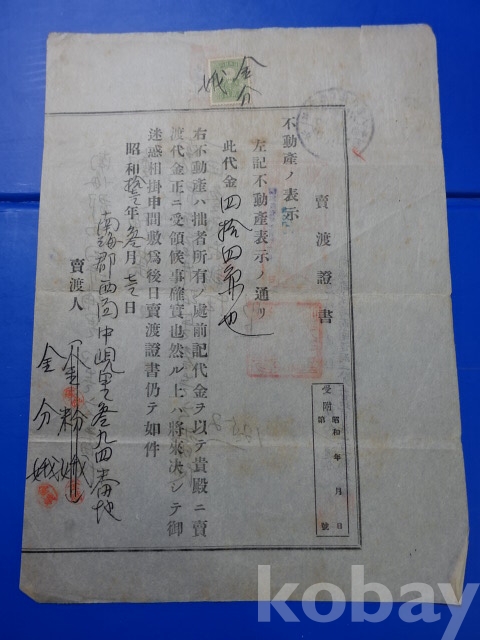 金分
賣渡證書
受附
昭和 年 月 日
第 號
不動產ノ表示
左記不動產表示ノ通リ
此代金四拾四圓也
右不動產ハ拙者所有ノ處前記代金ヲ以テ貴殿ニ賣
渡代金正ニ受領候事確實也然ル上ハ將來決シテ御
迷惑相掛申間敷爲後日賣渡證書仍テ如件
昭和拾年參月 日
南海郡西面中峴里參九四番地
賣渡人
金粉
金分
kobay